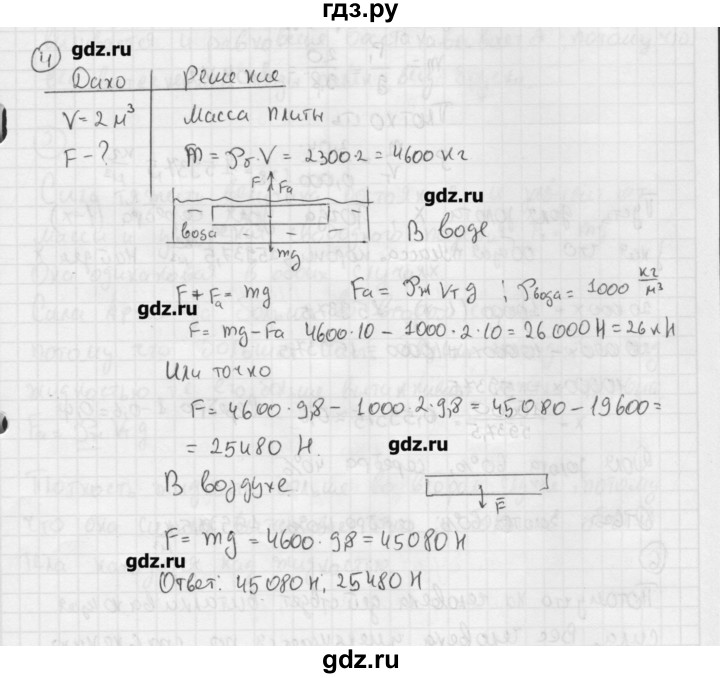 гдз.ру
gdz.ru
4
Дано Решение
V = 2 м³ Масса плиты
F - ? m = ρт · V = 2300·2 = 4600 кг
gdz.ru
F Fa
вода
mg
В воде
gdz.ru
F + Fa = mg Fa = ρж Vт g ; ρвода = 1000 кг/м³
F = mg - Fa 4600·10 - 1000·2·10 = 26000 Н = 26 кН
Или точно
F = 4600·9,8 - 1000·2·9,8 = 45080 - 19600 =
= 25480 Н.
gdz.ru
В воздухе
F
F = mg = 4600·9,8 = 45080 Н
gdz.ru
Ответ: 45080 Н, 25480 Н
gdz.ru